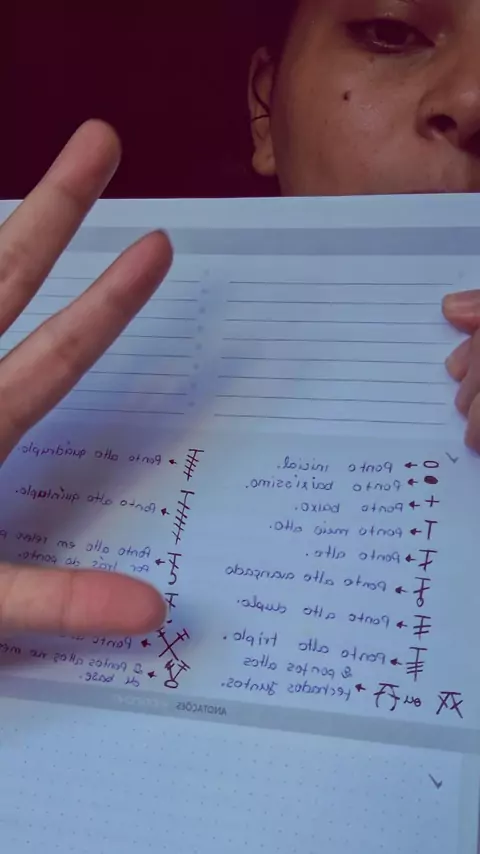 Ponto inicial.
Ponto baixíssimo.
ponto baixo.
ponto meio alto.
Ponto alto.
Ponto alto avançado
Ponto alto duplo.
Ponto alto triplo.
2 pontos altos
ou fechados juntos.
Ponto alto quádruplo.
Ponto alto quíntuplo.
Ponto alto em relevo
por trás do ponto.
Ponto
2 Pontos altos no
de base.
ANOTAÇÕES